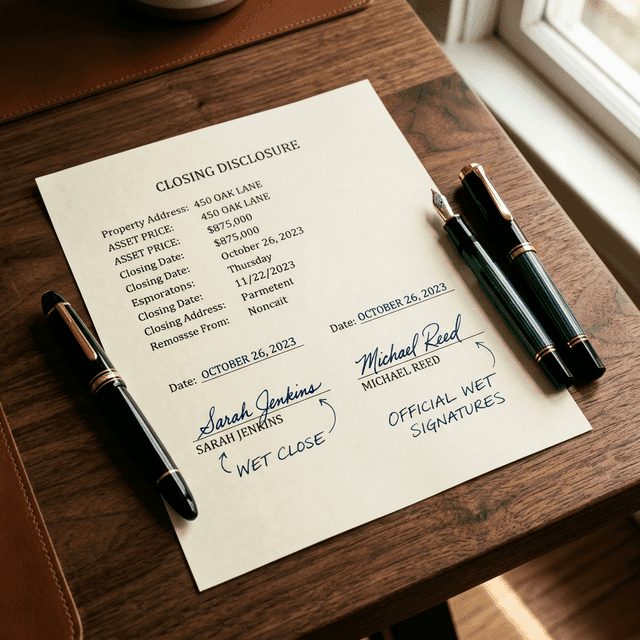 CLOSING DISCLOSURE
Property Address: 450 OAK LANE
ASSET PRICE: 450 OAK LANE
ASSET PRICE: $875,000
Closing Date: $875,000
Closing Date: October 26, 2023
Esporatons: Thursday
Closing Date: 11/22/2023
Closing Address: Parmetent
Remosse From: Noncait
Date: OCTOBER 26, 2023
Sarah Jenkins
SARAH JENKINS
WET CLOSE
Date: OCTOBER 26, 2023
Michael Reed
MICHAEL REED
OFFICIAL WET
SIGNATURES